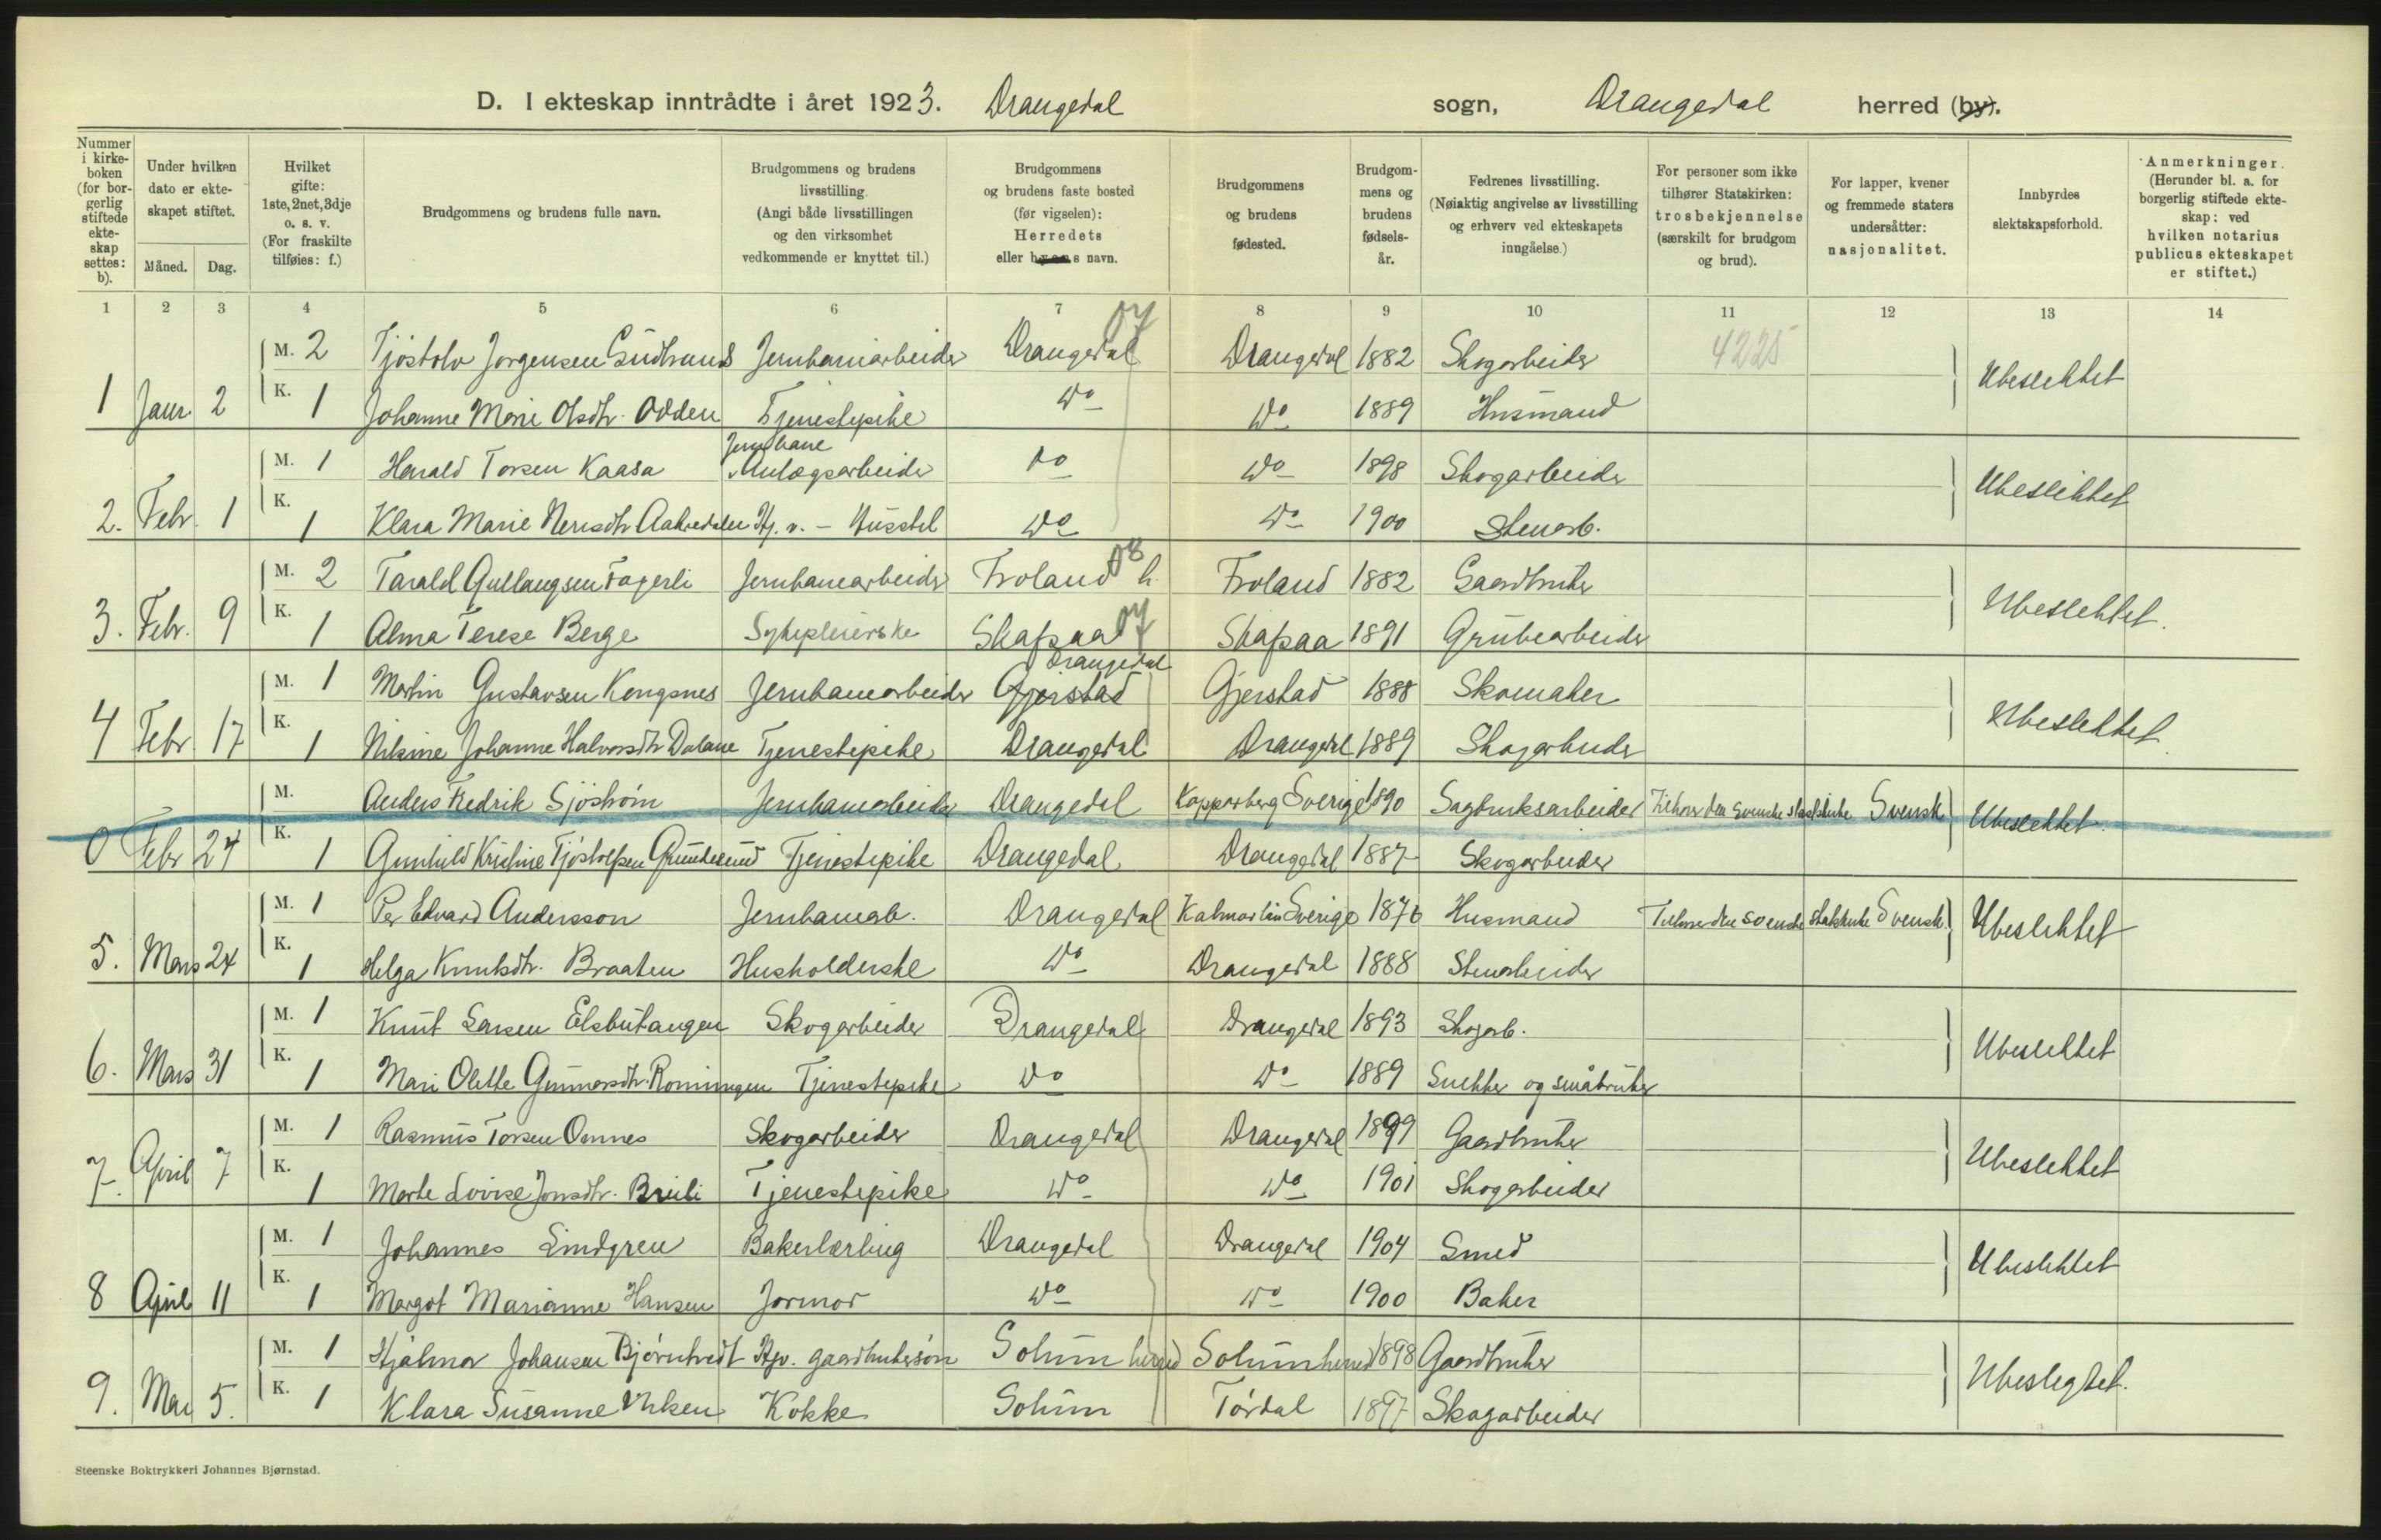 D. I ekteskap inntrådte i året 1923. Drangedal sogn, Drangedal herred (by).
Nummer i kirkeboken (for borgerlig stiftede ekteskap settes: b).
Under hvilken dato er ekteskapet stiftet.
Måned. Dag.
Hvilket gifte: 1ste, 2net, 3dje o. s. v. (For fraskilte tilføies: f.)
Brudgommens og brudens fulle navn.
Brudgommens og brudens livsstilling. (Angi både livsstillingen og den virksomhet vedkommende er knyttet til.)
Brudgommens og brudens faste bosted (før vigselen): Herredets eller byens navn.
Brudgommens og brudens fødested.
Brudgommens og brudens fødselsår.
Fedrenes livsstilling. (Nøiaktig angivelse av livsstilling og erhverv ved ekteskapets inngåelse.)
For personer som ikke tilhører Statskirken: trosbekjennelse (særskilt for brudgom og brud).
For lapper, kvener og fremmede staters undersåtter: nasjonalitet.
Innbyrdes slektskapsforhold.
Anmerkninger. (Herunder bl. a. for borgerlig stiftede ekteskap: ved hvilken notarius publicus ekteskapet er stiftet.)
1 2 3 4 5 6 7 8 9 10 11 12 13 14
07
M. 2 Tjøstolv Jørgensen Jernbanearbeider Drangedal Drangedal 1882 Skogarbeider 4225
1 Janr. 2 K. 1 Johanne Marie Olsdtr. Odden Tjenestepike do do 1889 Husmand Ubeslektet
Jernbane
M. 1 Harald Torsen Kaasa Anlægsarbeider do do 1898 Skogarbeider
2. Febr. 1 K. 1 Klara Marie Aakredalen Hj. v. - Husstel do do 1900 Stenarb. Ubeslektet
08
M. 2 Tarald Gullaugsen Fagerli Jernbanearbeider Froland h. Froland 1882 Gaardbruker
3. Febr. 9 K. 1 Alma Terese Berge Sykepleierske Skafsaa 07 Skafsaa 1891 Grubearbeider Ubeslektet.
Drangedal
M. 1 Martin Gustavsen Kongsnes Jernbanearbeider Gjerstad Gjerstad 1888 Skomaker
4 Febr 17 K. 1 Nikine Johanne Halvorsdtr Dalane Tjenestepike Drangedal Drangedal 1889 Skogarbeider Ubeslektet.
M. Anders Fredrik Sjöström Jernbanearbeider Drangedal Kopparberg Sverige 1890 Sagbruksarbeider Tilhører den svenske statskirke Svensk
0 Febr 24 K. 1 Gunhild Kristine Tjøstolfsen Tjenestepike Drangedal Drangedal 1887 Skogarbeider Ubeslektet.
M. 1 Per Edvard Andersson Jernbanearb. Drangedal Kalmar län Sverige 1876 Husmand Tilhører den svenske statskirke Svensk.
5. Mars 24 K. 1 Helga Knutsdtr. Braaten Husholderske do Drangedal 1888 Stenarbeider Ubeslektet
M. 1 Knut Larsen Elsbutangen Skogarbeider Drangedal Drangedal 1893 Skogarb.
6. Mars 31 K. 1 Mari Olette Gunnarsdtr. Rominngen Tjenestepike do do 1889 Snekker og småbruker Ubeslektet
M. 1 Rasmus Torsen Omnes Skogarbeider Drangedal Drangedal 1899 Gaardbruker
7. April 7 K. 1 Marte Lovise Jonsdtr. Tjenestepike do do 1901 Skogarbeider Ubeslektet
M. 1 Johannes Lindgren Bakerlærling Drangedal Drangedal 1904 Smed
8 April 11 K. 1 Margot Marianne Hansen Jormor do do 1900 Baker Ubeslektet
M. 1 Hjalmar Johansen Bjørntvedt Hjv. gaardbrukersøn Solum herred Solum herred 1898 Gaardbruker
9. Mai 5. K. 1 Klara Susanne Kokke Solum Tørdal 1897 Skogarbeider Ubeslegtet.
Steenske Boktrykkeri Johannes Bjørnstad.